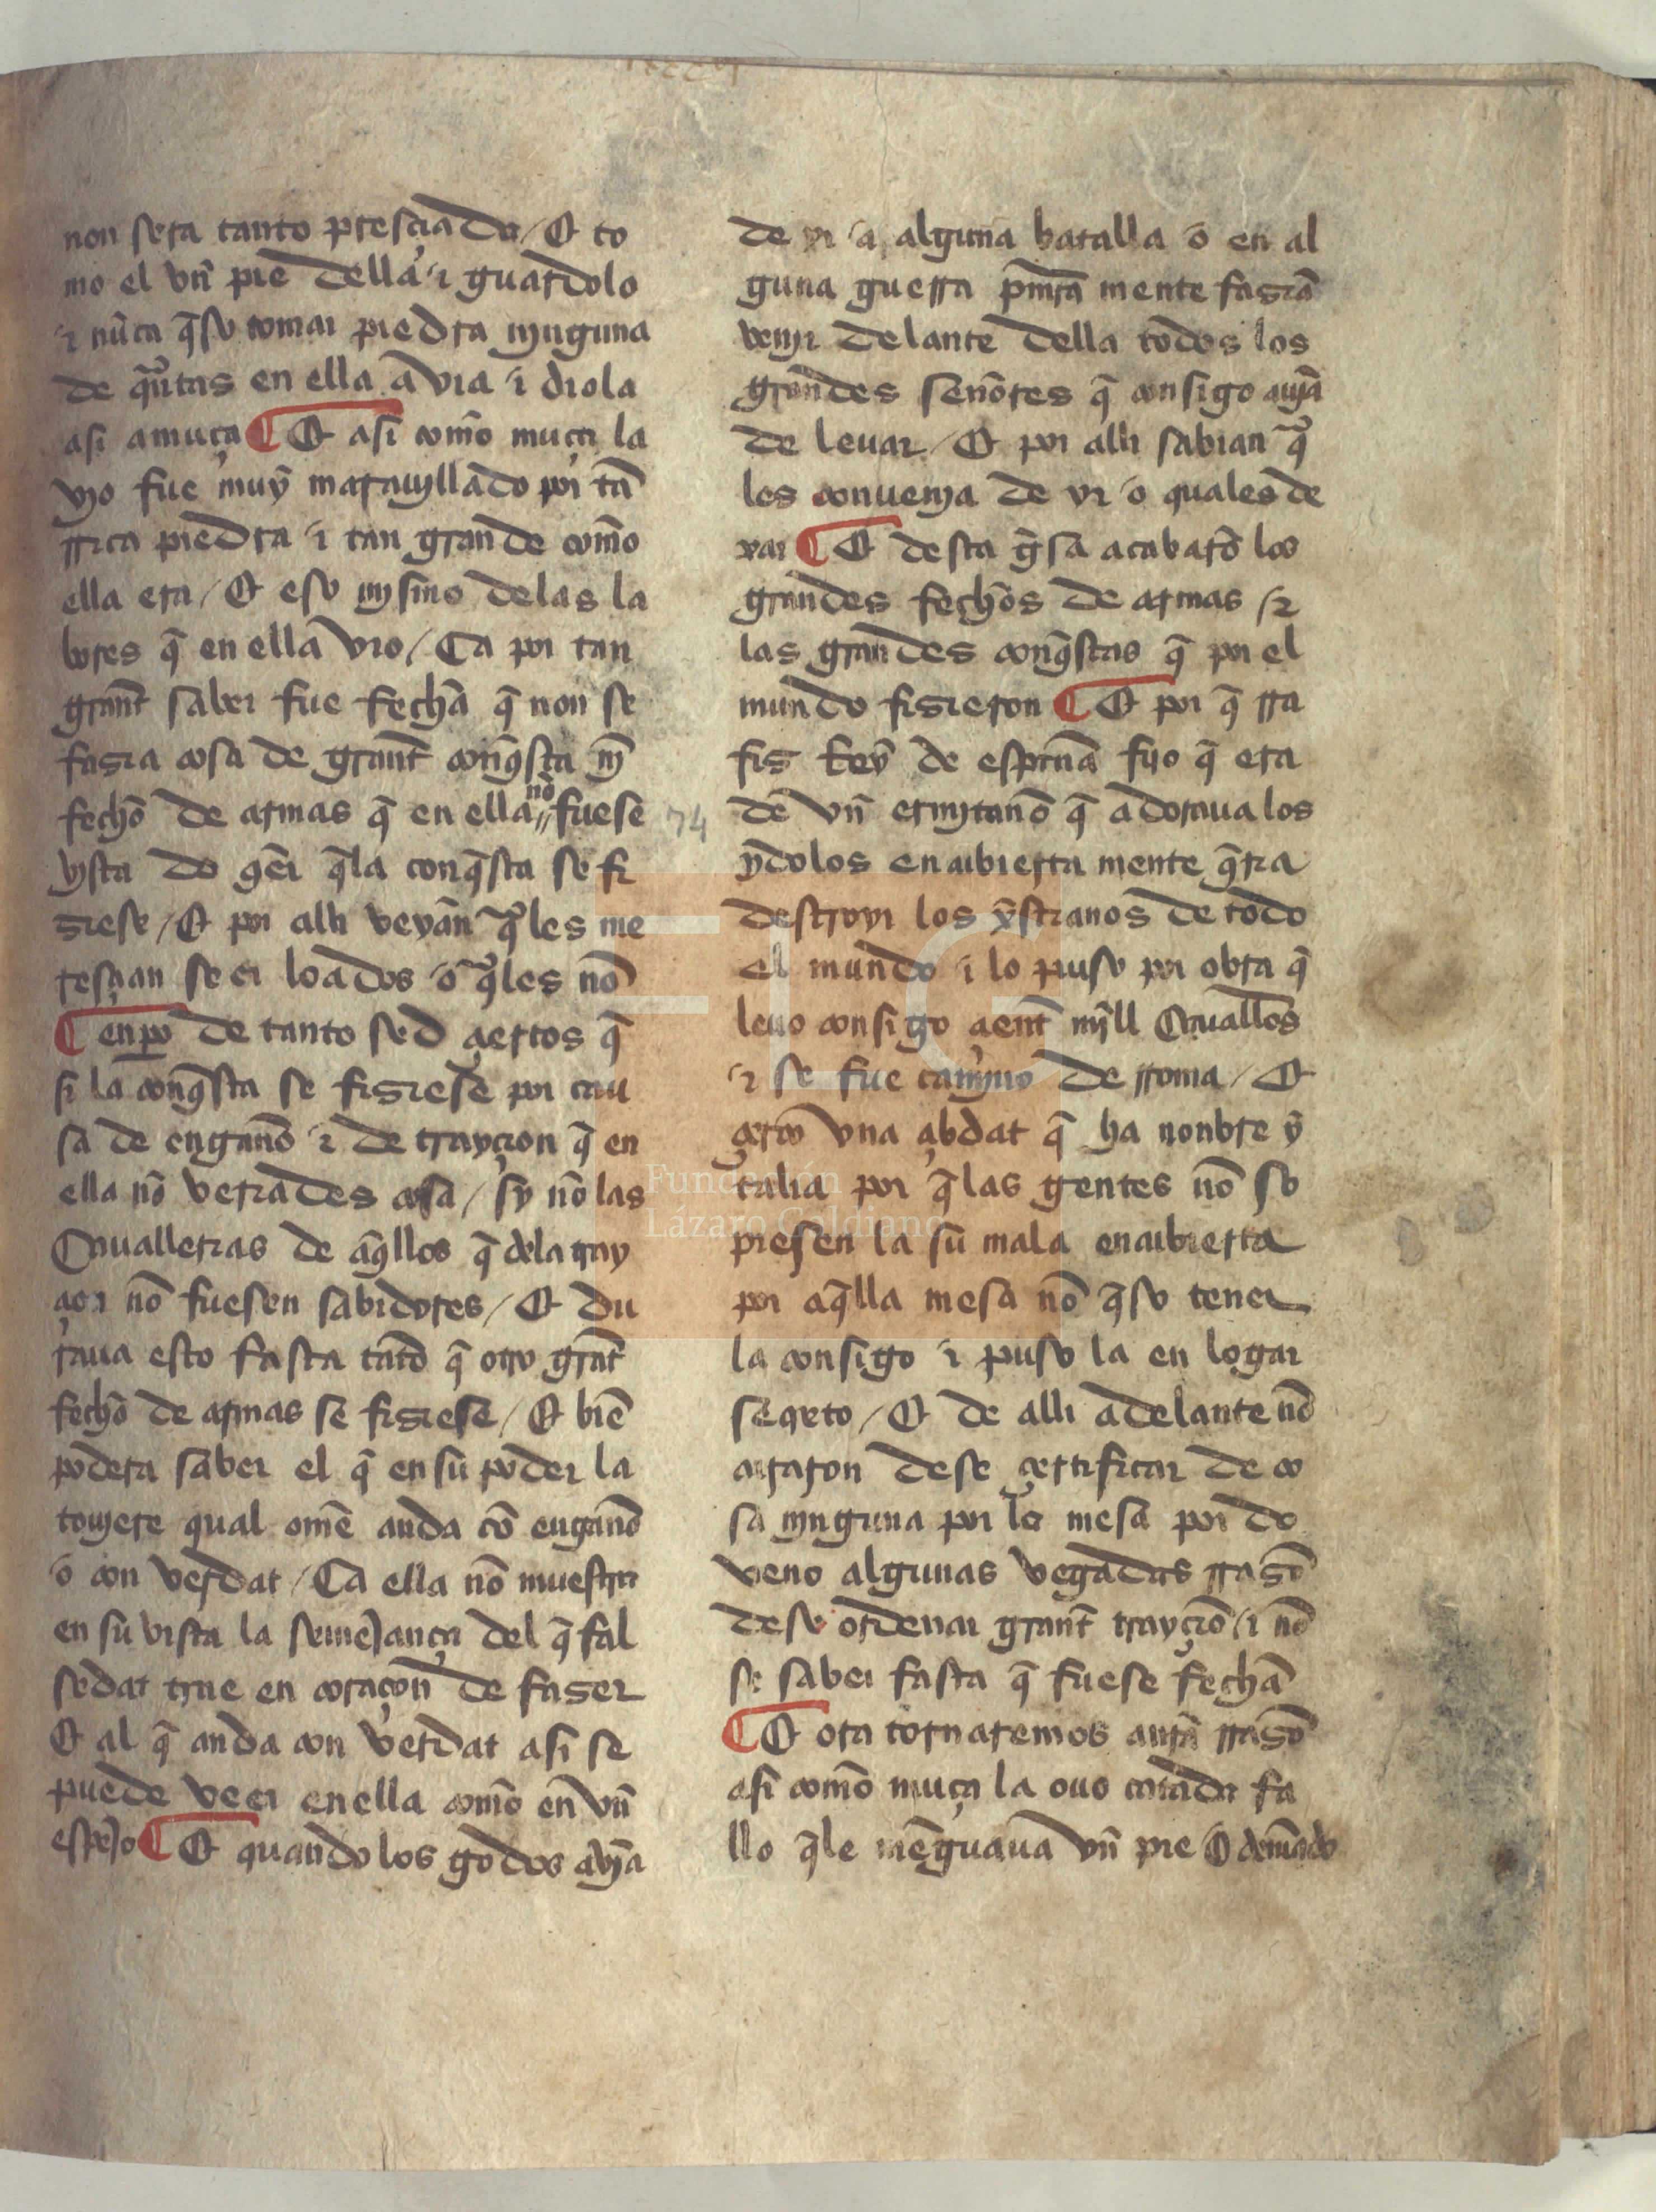 non sera tanto presçiada / E to
mo el vn̄ pie della / ⁊ guardolo
⁊ nũca q̃so tomar piedra njnguna
de quãtas en ella avia ⁊ diola
asi a muça ¶ E asi com̃o muça la
vio fue muỹ marauillado por tã
rrica piedra ⁊ tan grande com̃o
ella era / E eso mjsmo delas la
bores q̃ en ella vio / Ca por tan
grant̃ saber fue fecha q̃ non se
fasia cosa de grant̃ conq̃sta nj̃
fecho de armas q̃ en ella nõ fuese
vista do q̃er q̃la conq̃sta se fi
siese / E por alli veyan q̃les me
resçian seer loados o q̃les nõ
¶ enpo de tanto sed çiertos q̃
si la conq̃sta se fisiese por cau
sa de engano ⁊ de trayçion q̃ en
ella nõ veriades cosa / sy nõ las
Cauallerias de aq̃llos q̃ dela tray
çion nõ fuesen sabidores / E du
raua esto fasta tãto q̃ otro grãt
fecho de armas se fisiese / E biẽ
podera saber el q̃ en su poder la
toujere qual om̃e anda cõ engano
o con verdat / Ca ella nõ muestra
en su vista la semejança del q̃ fal
sedat trae en coraçon de faser
E al q̃ anda con verdat asi se
puede veer en ella com̃o en vn̄
espejo ¶ E quando los godos avjã
de yr a alguna batalla o en al
guna guerra prim̃ra mente fasiã
venjr delante della todos los
grandes señores q̃ consigo aujã
de leuar / E por alli sabian q̃
les conuenja de yr o quales de
xar ¶ E desta g̃sa acabarõ los
grandes fechos de armas / ⁊
las grandes conq̃stas q̃ por el
mundo fisieron ¶ E por q̃ rra
fis Rey de espana fijo q̃ era
de vn̄ ermitano q̃ adoraua los
ydolos encubierta mente q̃ria
destroyr los xp̃stianos de todo
el mundo ⁊ lo puso por obra q̃
leuo consigo çient mjll Cauallos
⁊ se fue camjno de rroma / E
çerco vna çibdat q̃ ha nonbre y
talia por q̃ las gentes nõ so
piesen la su mala encubierta
por aq̃lla mesa nõ q̃so tener
la consigo ⁊ puso la en logar
secreto / E de alli adelante nõ
curaron dese çertificar de co
sa njnguna por la mesa por do
veno algunas vegadas rrasõ
dese ordenar grant̃ trayçiõ / ⁊ nõ
se saber fasta q̃ fuese fecha
¶ E ora tornaremos a nr̃a rrasõ
asi com̃o muça la ouo catada fa
llo q̃le mẽguaua vn̄ pie E demãdo
74
FLG
Fundación
Lázaro Galdiano